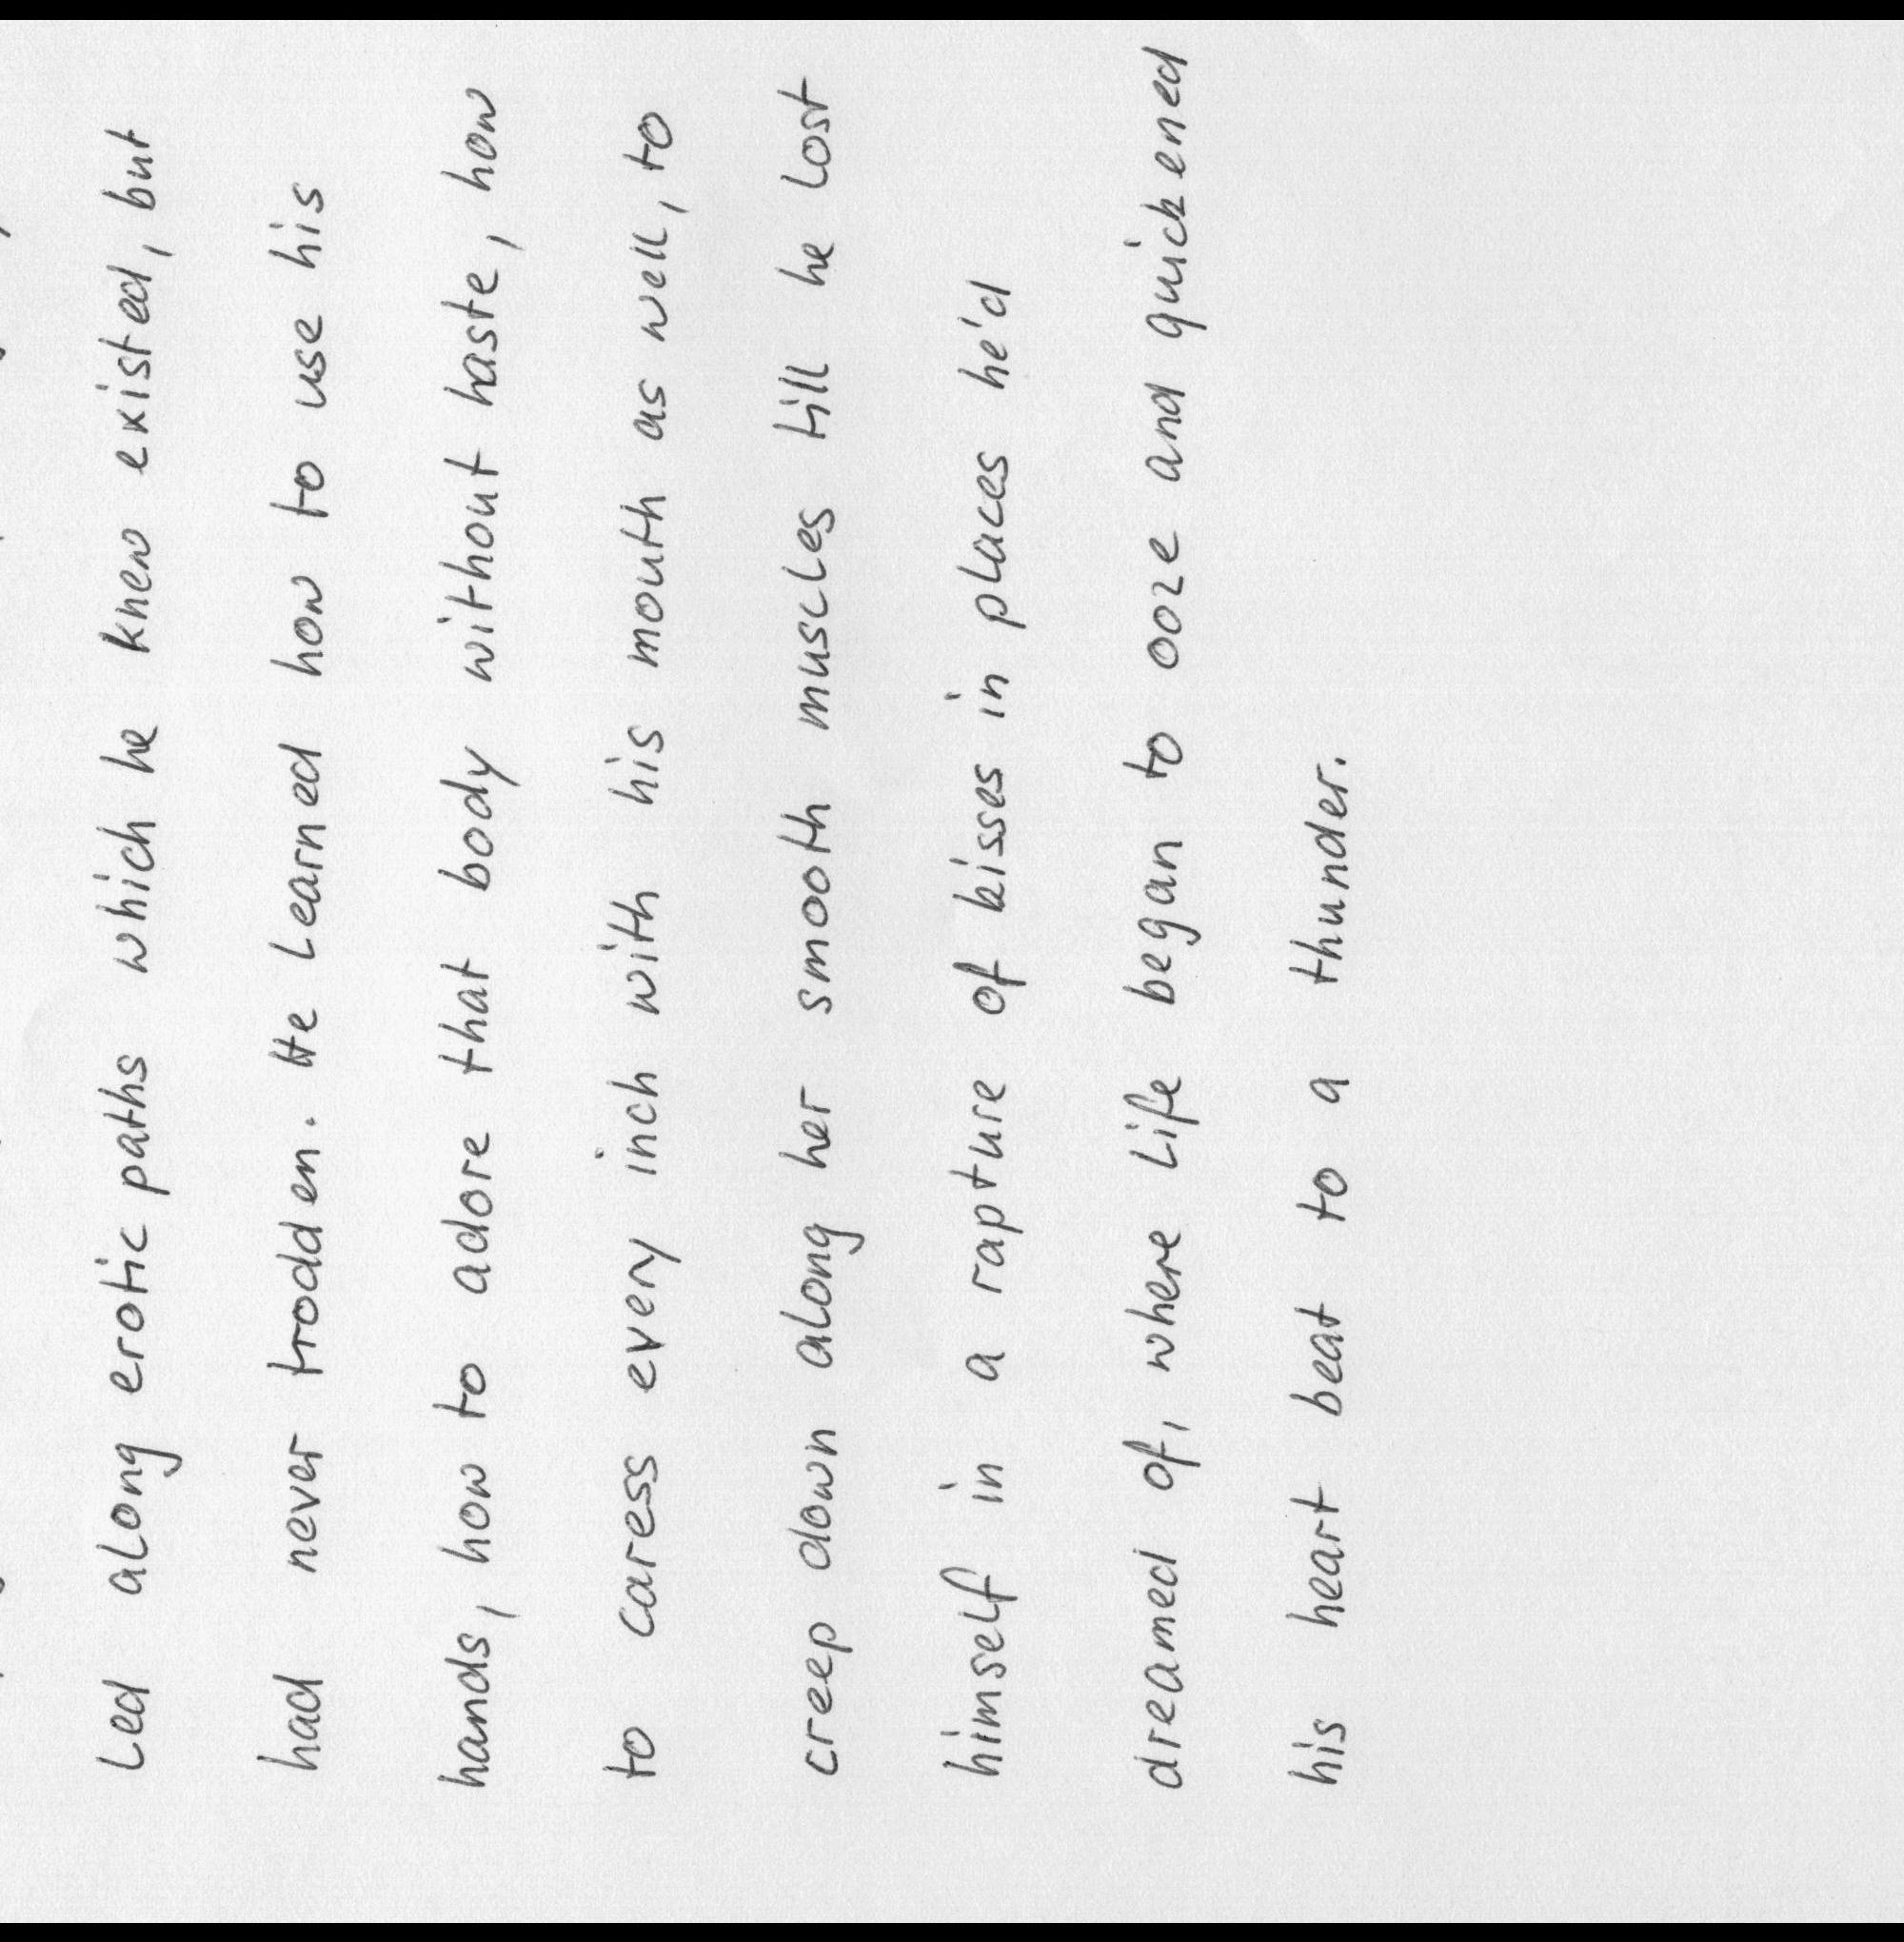 Led along erotic paths which he knew existed, but
had never trodden. He Learned how to use his
hands, how to adore that body without haste, how
to caress every inch with his mouth as well, to
creep down along her smooth muscles till he Lost
himself in a rapture of kisses in places he'd
dreamed of, where Life began to ooze and quickened
his heart beat to a thunder.